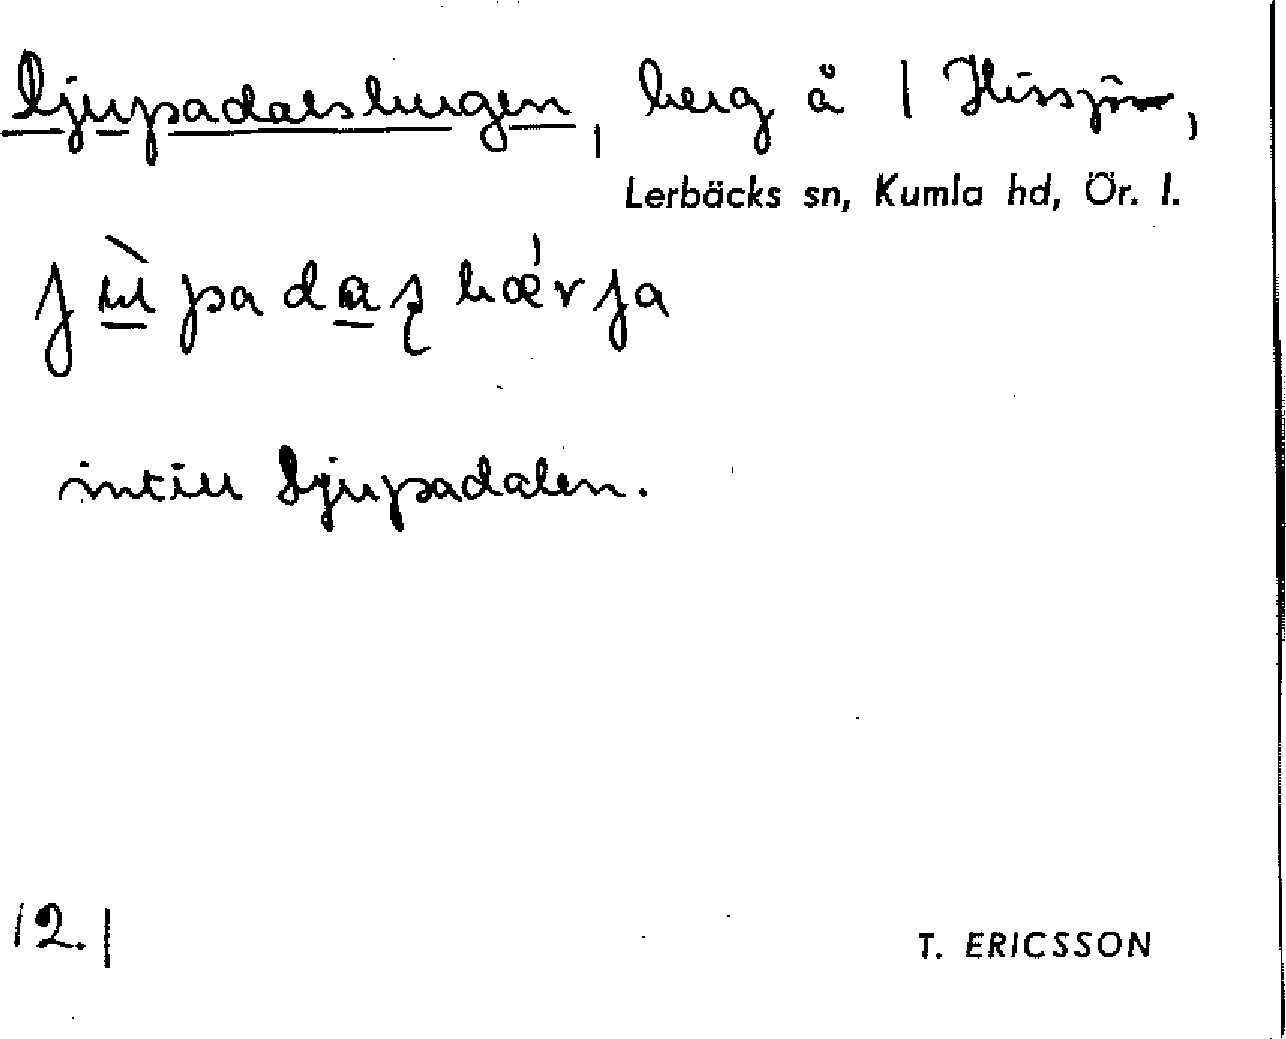 Djupadalsbergen, berg å 1 Hissjön,
Lerbäcks sn, Kumla hd, Ör. l.
intill Djupadalen.
12.1
T. ERICSSON